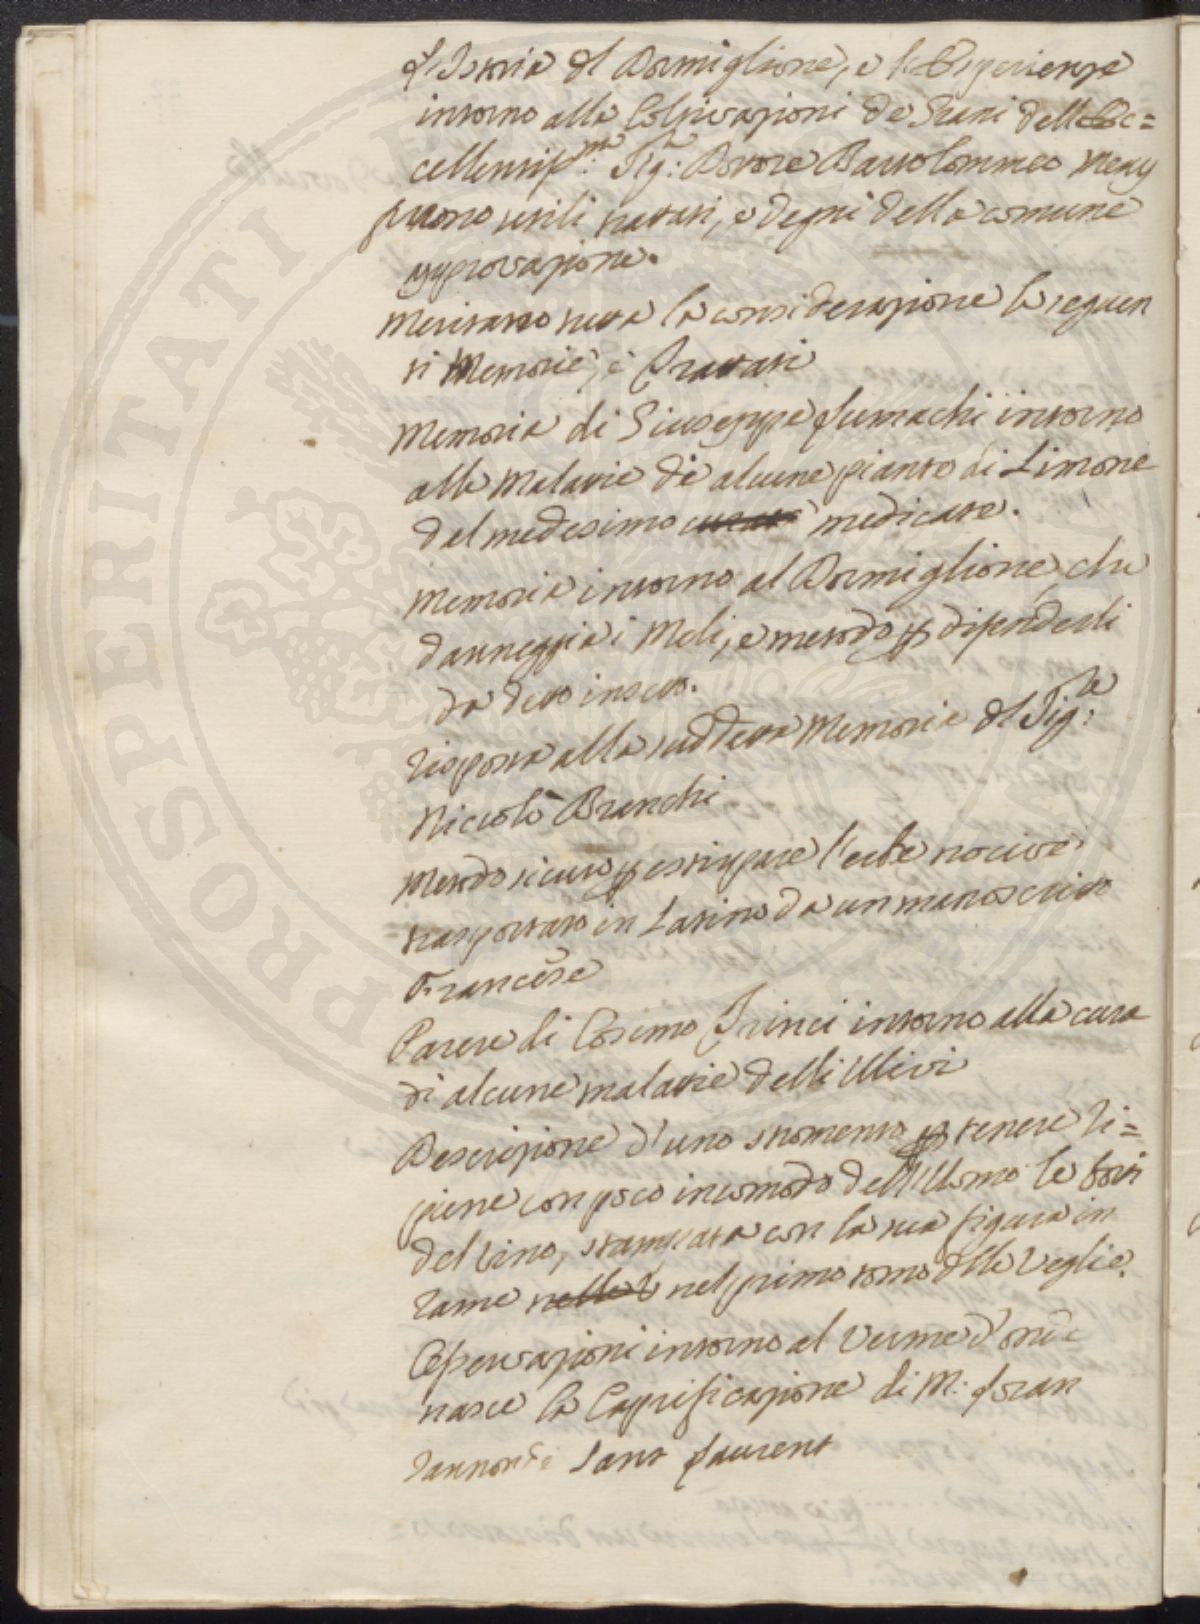 L'Istoria del Dormiglione, e le Esperienze
intorno alla Coltivazioni de Grani dell Ec=
cellentiss.mo Sig:re Dottore Bartolommeo Meny
furono utili trattati, e degni della comune
approvazione.
Meritano tutta la considerazione le seguen
ti Memorie, e Trattati
Memoria di Giuseppe Lumachi intorno
alle Malattie di alcune piante di Limone
dal medesimo curate medicate.
Memoria intorno al Dormiglione che
danneggia i Meli, e metodo p difenderli
da detto insetto.
Risposta alla suddetta Memoria del Sig:re
Niccolò Branchi
Metodo sicuro p estirpare l'erbe nocive
trasportato in Latino da un manoscritto
Francese
Parere di Cosimo Trinci intorno alla cura
di alcune malattie delli Ulivi
Descrizione d'uno stromento p tenere ri=
piene con poco incomodo dell'Uomo le Botti
del Vino, stampata con la sua figura in
rame nelle V nel primo tomo delle Veglie.
Osservazioni intorno al Verme d'onde
nasce la Caprificazione di M:
Sant Laurent
PROSPERITATI